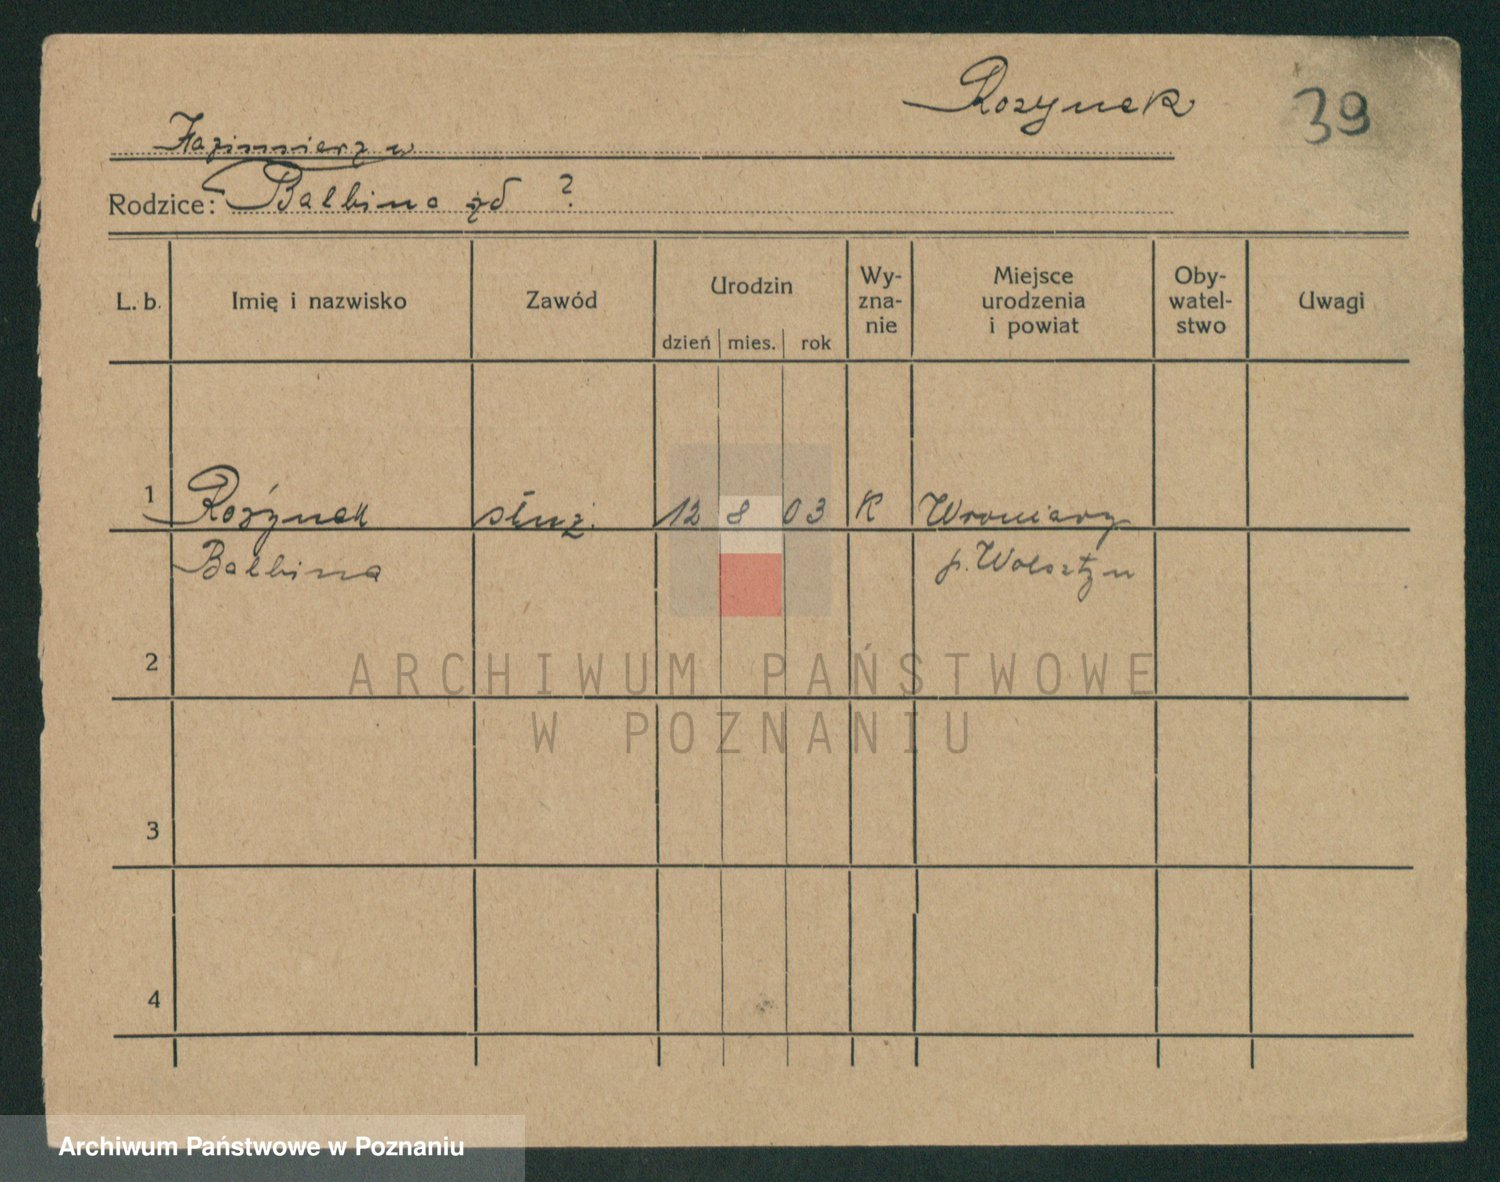 Rozynek 39
Kazimierz u
Rodzice: Balbina żd ?
L. b. Imię i nazwisko Zawód Urodzin Wy-zna-nie Miejsce urodzenia i powiat Oby-watel-stwo Uwagi
dzień mies. rok
1 Rożynek służ. 12 8 03 K Wroniawy
Balbina p. Wolsztyn
2
3
4
ARCHIWUM PAŃSTWOWE
W POZNANIU
Archiwum Państwowe w Poznaniu